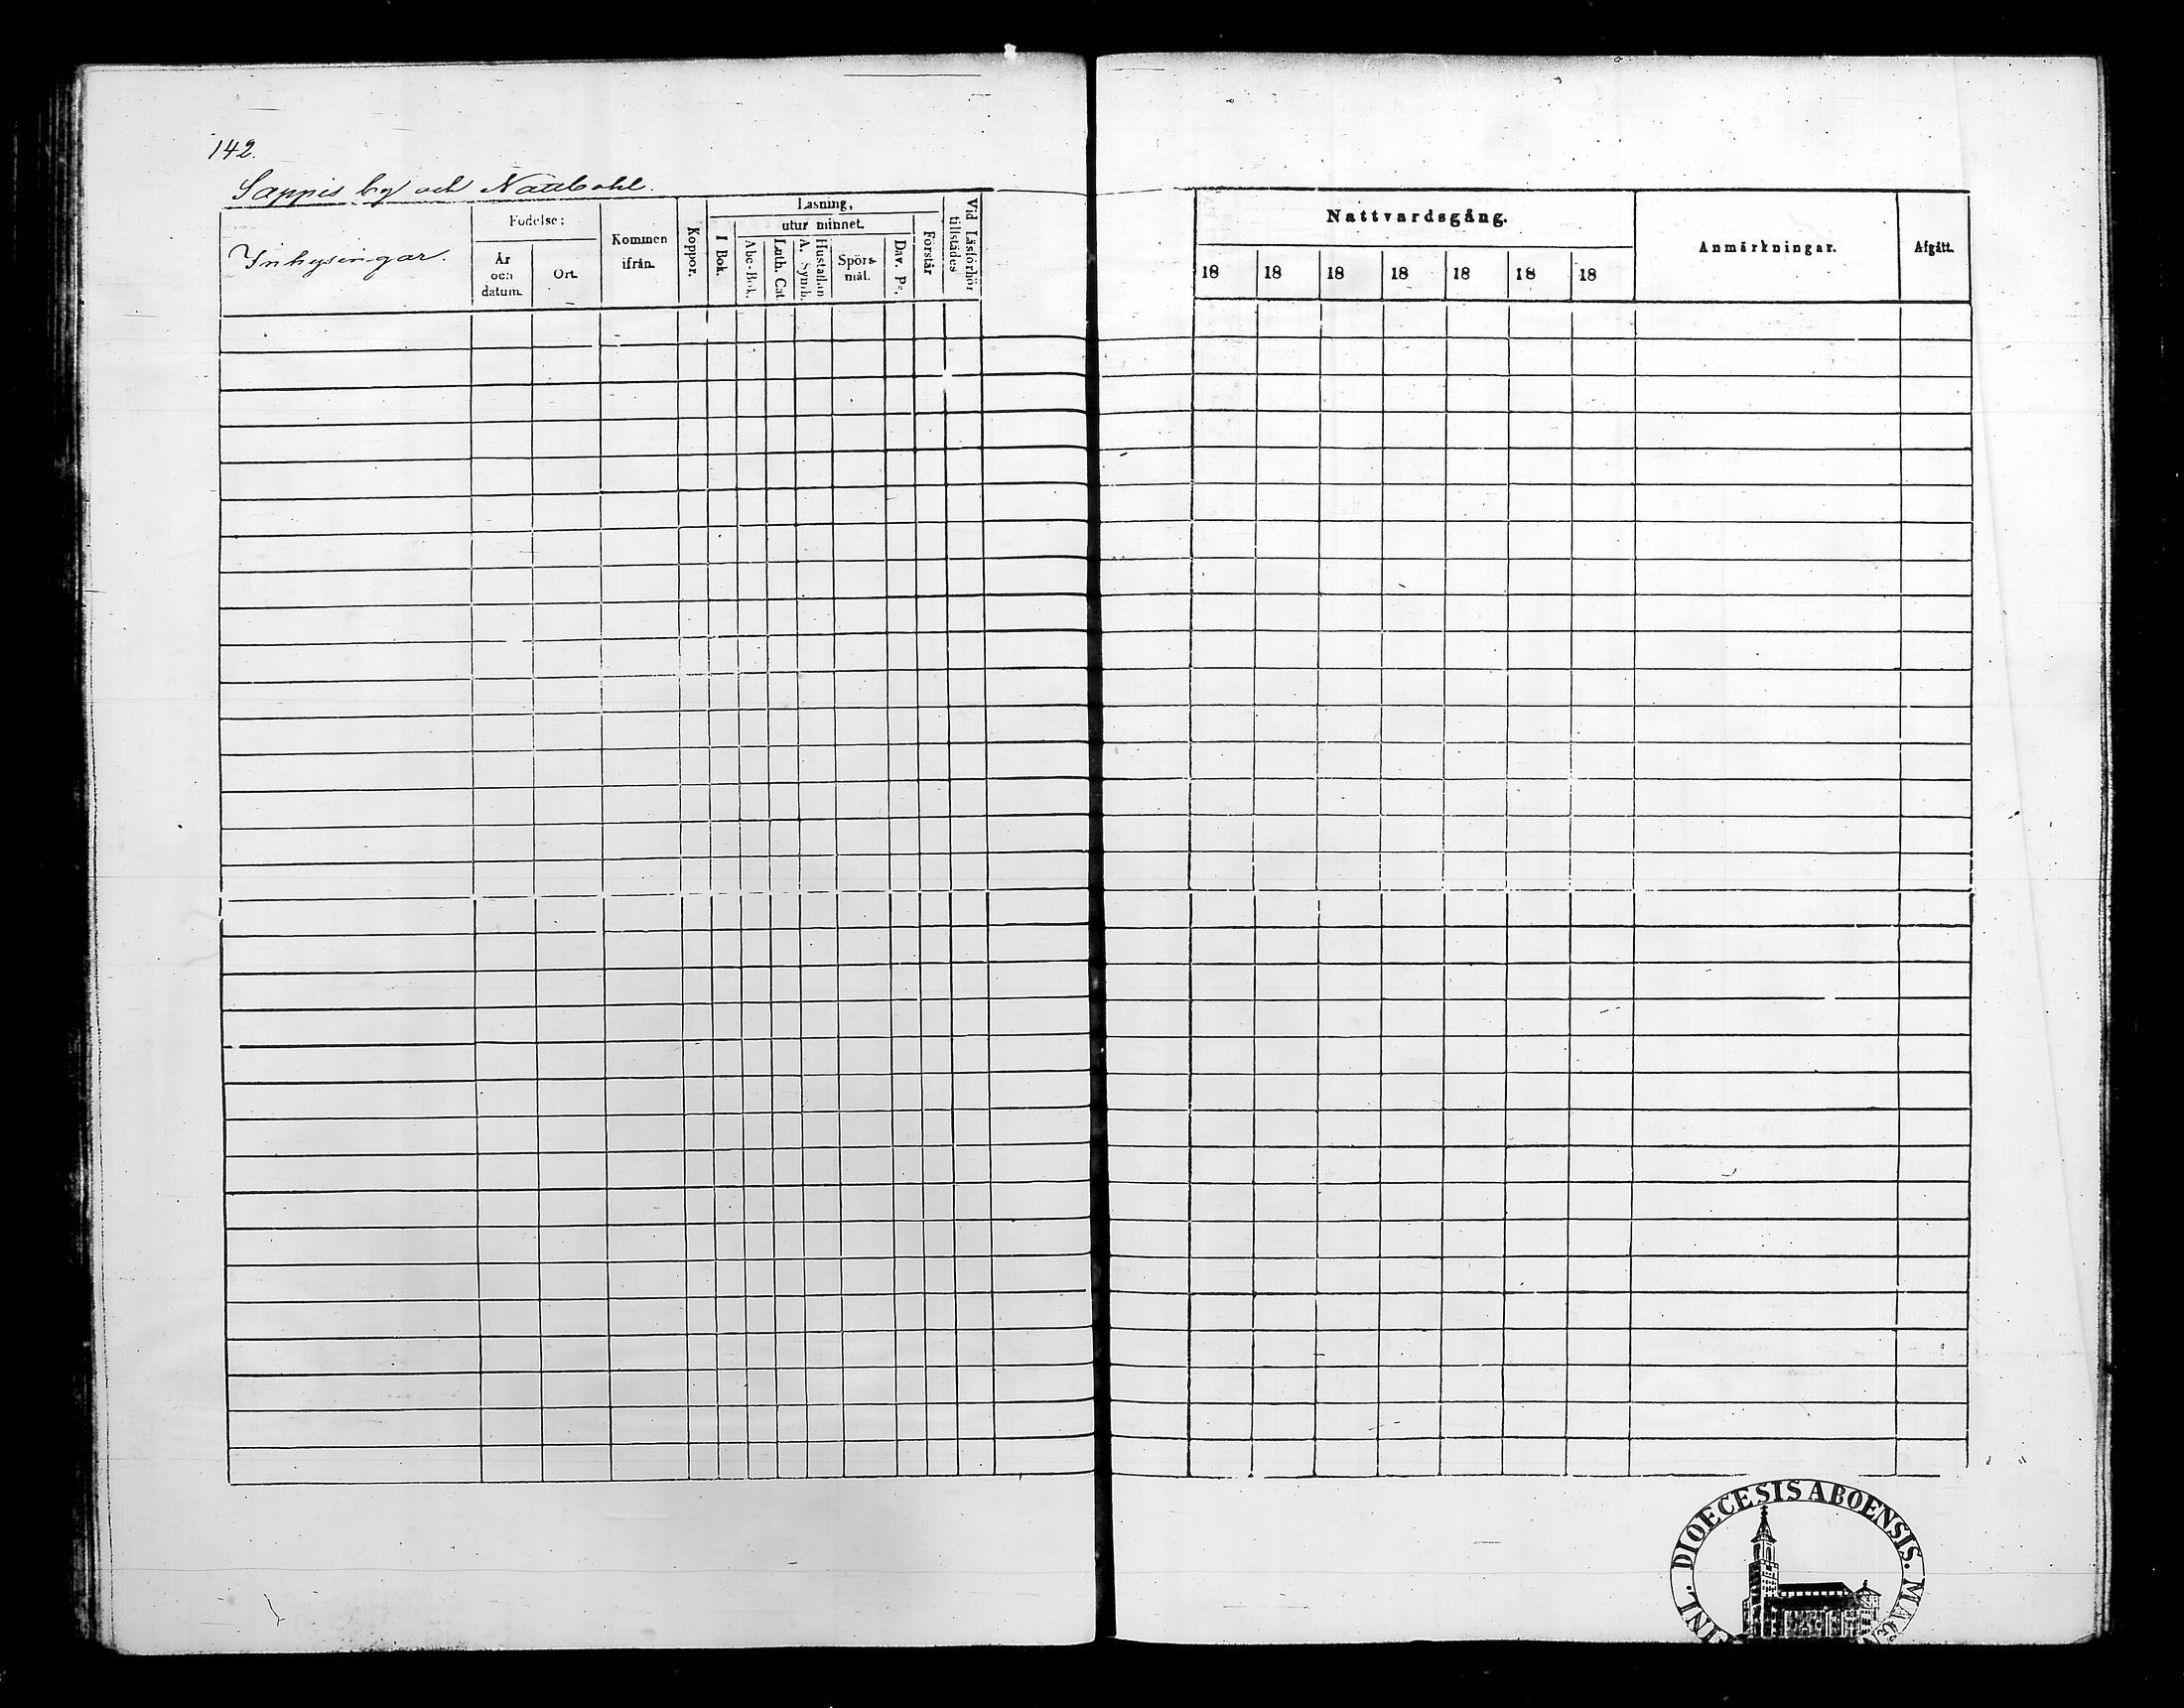 142.
Sappis by och Nattbohl.
Inhysingar.
Födelse:
År
och
datum.
Ort.
Kommen
ifrån.
Koppor.
Läsning,
I Bok.
utur minnet.
Abc-Bok.
Luth. Cat.
A. Symb.
Hustaflan
Spörs-
mål.
Dav. Ps.
Förstår
Vid Läsförhör
tillstädes
Nattvardsgång.
18 18 18 18 18 18 18
Anmärkningar.
Afgått.
DIOECESIS ABOENSIS.